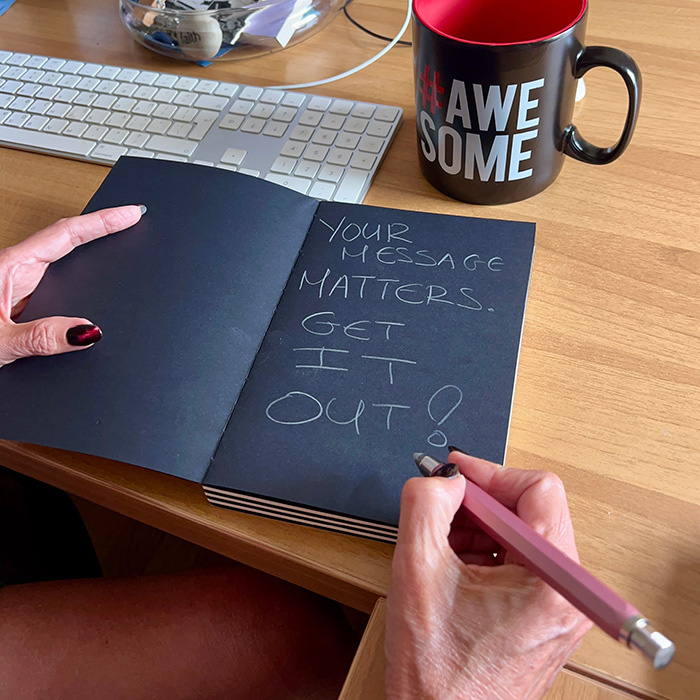 #AWE
SOME
YOUR
MESSAGE
MATTERS.
GET
IT
OUT!